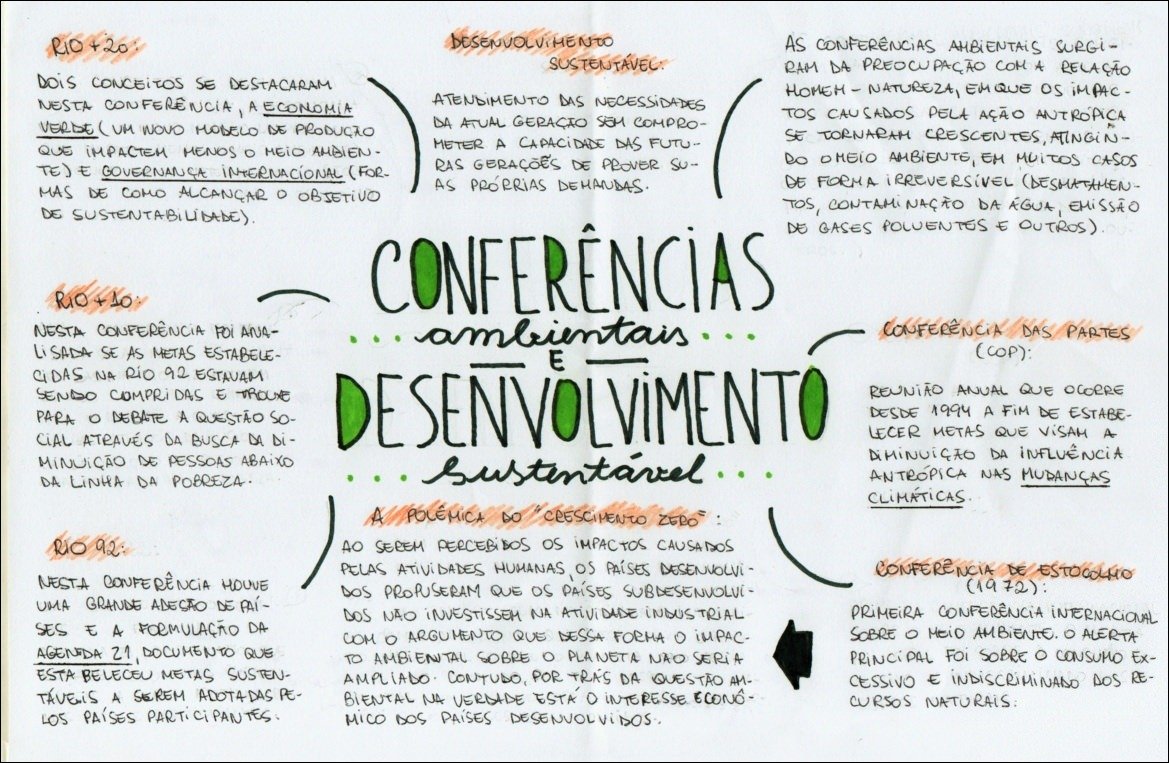 RIO + 20:
DOIS CONCEITOS SE DESTACARAM
NESTA CONFERÊNCIA, A ECONOMIA
VERDE (UM NOVO MODELO DE PRODUÇÃO
QUE IMPACTEM MENOS O MEIO AMBIEN-
TE) E GOVERNANÇA INTERNACIONAL (FOR-
MAS DE COMO ALCANÇAR O OBJETIVO
DE SUSTENTABILIDADE).
DESENVOLVIMENTO
SUSTENTÁVEL:
ATENDIMENTO DAS NECESSIDADES
DA ATUAL GERAÇÃO SEM COMPRO-
METER A CAPACIDADE DAS FUTU-
RAS GERAÇÕES DE PROVER SU-
AS PRÓPRIAS DEMANDAS.
AS CONFERÊNCIAS AMBIENTAIS SURGI-
RAM DA PREOCUPAÇÃO COM A RELAÇÃO
HOMEM - NATUREZA, EM QUE OS IMPAC-
TOS CAUSADOS PELA AÇÃO ANTRÓPICA
SE TORNARAM CRESCENTES, ATINGIN-
DO O MEIO AMBIENTE, EM MUITOS CASOS
DE FORMA IRREVERSÍVEL (DESMATAMEN-
TOS, CONTAMINAÇÃO DA ÁGUA, EMISSÃO
DE GASES POLUENTES E OUTROS).
CONFERÊNCIAS
ambientais
E
DESENVOLVIMENTO
sustentável
RIO + 10:
NESTA CONFERÊNCIA FOI ANA-
LISADA SE AS METAS ESTABELE-
CIDAS NA RIO 92 ESTAVAM
SENDO CUMPRIDAS E TROUXE
PARA O DEBATE A QUESTÃO SO-
CIAL ATRAVÉS DA BUSCA DA DI-
MINUIÇÃO DE PESSOAS ABAIXO
DA LINHA DA POBREZA.
CONFERÊNCIA DAS PARTES
(COP):
REUNIÃO ANUAL QUE OCORRE
DESDE 1994 A FIM DE ESTABE-
LECER METAS QUE VISAM A
DIMINUIÇÃO DA INFLUÊNCIA
ANTRÓPICA NAS MUDANÇAS
CLIMÁTICAS.
RIO 92:
NESTA CONFERÊNCIA HOUVE
UMA GRANDE ADESÃO DE PAÍ-
SES E A FORMULAÇÃO DA
AGENDA 21, DOCUMENTO QUE
ESTABELECEU METAS SUSTEN-
TÁVEIS A SEREM ADOTADAS PE-
LOS PAÍSES PARTICIPANTES.
A POLÊMICA DO "CRESCIMENTO ZERO":
AO SEREM PERCEBIDOS OS IMPACTOS CAUSADOS
PELAS ATIVIDADES HUMANAS, OS PAÍSES DESENVOLVI-
DOS PROPUSERAM QUE OS PAÍSES SUBDESENVOLVI-
DOS NÃO INVESTISSEM NA ATIVIDADE INDUSTRIAL
COM O ARGUMENTO QUE DESSA FORMA O IMPAC-
TO AMBIENTAL SOBRE O PLANETA NÃO SERIA
AMPLIADO. CONTUDO, POR TRÁS DA QUESTÃO AM-
BIENTAL NA VERDADE ESTÁ O INTERESSE ECONÔ-
MICO DOS PAÍSES DESENVOLVIDOS.
CONFERÊNCIA DE ESTOCOLMO
(1972):
PRIMEIRA CONFERÊNCIA INTERNACIONAL
SOBRE O MEIO AMBIENTE. O ALERTA
PRINCIPAL FOI SOBRE O CONSUMO EX-
CESSIVO E INDISCRIMINADO DOS RE-
CURSOS NATURAIS.